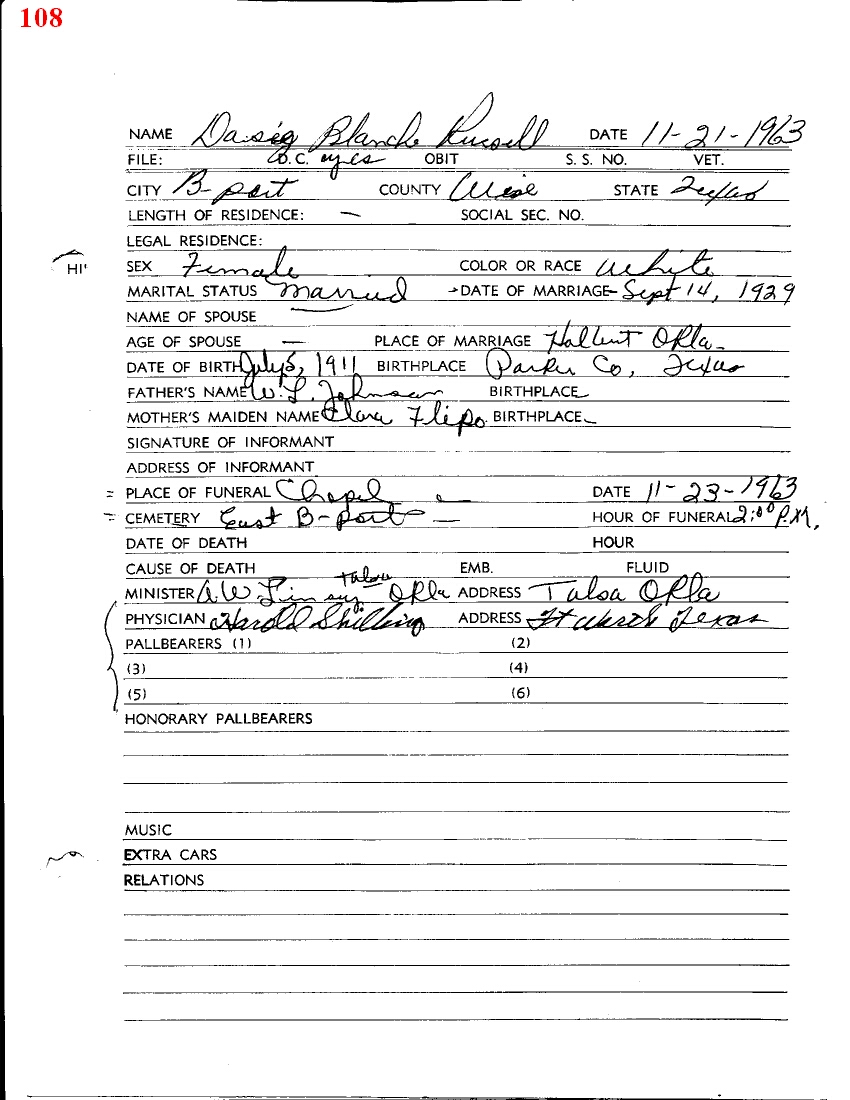 108
NAME Daisy Blanche Russell DATE 11-21-1963
FILE: D.C. yes OBIT S. S. NO. VET.
CITY B-port COUNTY Wise STATE Texas
LENGTH OF RESIDENCE: — SOCIAL SEC. NO.
LEGAL RESIDENCE:
HI'
SEX Female COLOR OR RACE White
MARITAL STATUS Married DATE OF MARRIAGE Sept 14, 1929
NAME OF SPOUSE —
AGE OF SPOUSE — PLACE OF MARRIAGE Okla.
DATE OF BIRTH July 5, 1911 BIRTHPLACE Parker Co, Texas
FATHER'S NAME W.L. Johnson BIRTHPLACE
MOTHER'S MAIDEN NAME Clara Flipo BIRTHPLACE
SIGNATURE OF INFORMANT
ADDRESS OF INFORMANT
= PLACE OF FUNERAL Chapel DATE 11-23-1963
= CEMETERY East B-port — HOUR OF FUNERAL 2:00 P.M.
DATE OF DEATH HOUR
CAUSE OF DEATH EMB. FLUID
MINISTER A.W. Tulsa Okla ADDRESS Tulsa Okla
PHYSICIAN Harold Shilling ADDRESS Ft Worth Texas
PALLBEARERS (1) (2)
(3) (4)
(5) (6)
HONORARY PALLBEARERS
MUSIC
EXTRA CARS
RELATIONS